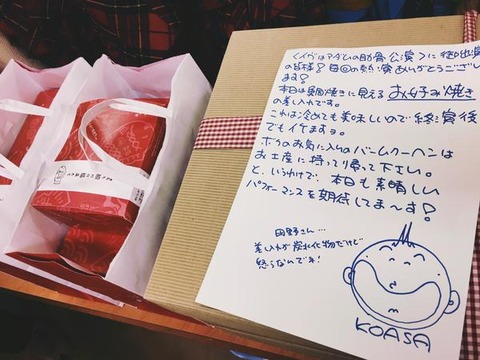 〈イヴはアダムの肋骨公演〉に御出演
の皆様！毎回の熱演ありがとうござい
ます！
本日は鯛焼きに見える お好み焼き
の差し入れです。
これは冷めても美味しいので終演後
でもイケますョ。
ボクのお気に入りのバームクーヘンは
お土産に持って帰って下さい。
と、いうわけで、本日も素晴しい
パフォーマンスを期待してま〜す！
田野さん…
差し入れが炭水化物だけど
怒らないでネ！
KOASA